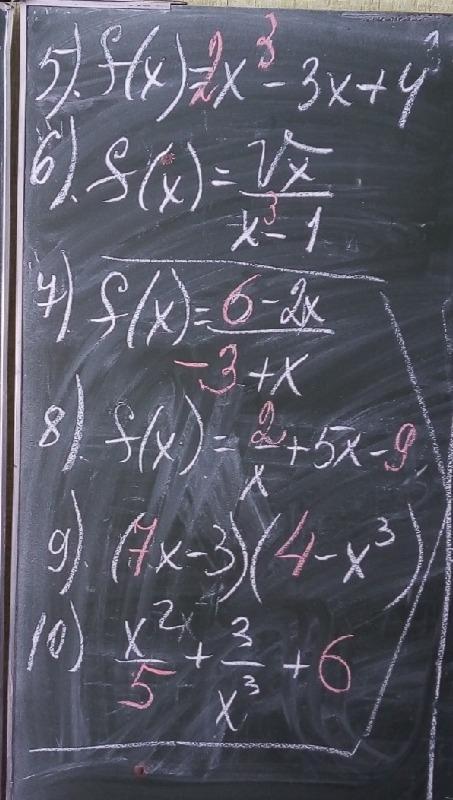 5). f(x)=2x³-3x+4³
6). f(x)=√x/(x³-1)
7) f(x)=(6-2x)/(-3+x)
8). f(x)=2/x+5x-9
9). (7x-3)(4-x³)
10) x²/5+3/x³+6